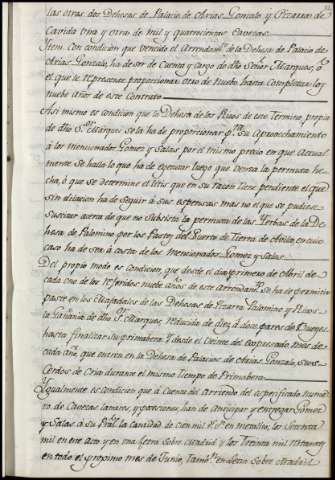 las otras dos Dehesas de Palacio de Obrias Gonzalo y Pizarra de
Cavida una y otra de mil y quatrocientas Cavezas.
Item. Con condicion que vencido el Arrendam.to de la Dehesa de Palacio de
Obrias Gonzalo, ha de ser de Cuenta y cargo de dho Señor Marques, ô
el que le represente proporcionar otro de nuebo hasta completar los
nuebe años de este Contrato
Asi mismo es condicion que la Dehesa de los Ruos de este Termino, propia
de dho S.or Marques se la ha de proporcionar p.a su Aprovechamiento
â los mencionados Gomez y Salas, por el mismo precio en que actual
mente se halla lo que ha de executar luego que venza la permuta he
cha, ô que se determine el litis que en su razon tiene pendiente el que
sin dilacion ha de seguir â sus expensas mas no el que se pudiere
suscitar acerca de que no subsista la permuta de las Yerbas de la De
hesa de Palomino por los del Puerto de Tierra de Abila en cuio
caso ha de ser â costa de los mencionados Gomez y Salas.
Del propio modo es condicion que desde el dia primero de Abril de
cada uno de los referidos nuebe años de este arrendam.to se ha de permitir
paste en los Majadales de las Dehesas de Pizarra Palomino y Ruos
la de dho S.or Marques, reducida de diez â doze pares de Bueyes
hasta finalizar su primabera. Y desde el veinte del expresado Mes de
cada año que entren en la Dehesa de Palacio de Obrias Gonzalo,
Cerdos de Cria durante el mismo tiempo de Primabera
Ygualmente es condicion que â cuenta del arriendo del expecificado nume
ro de Cavezas lanares, y porciones, han de anticipar y entregar Gomez
y Salas â su S.ria la cantidad de cien mil r.s v.n en metalico, los Setenta
mil en este acto y en una letra sobre Madrid y los Treinta mil restantes
en todo el proximo mes de Junio, tamb.n en letra sobre Madrid